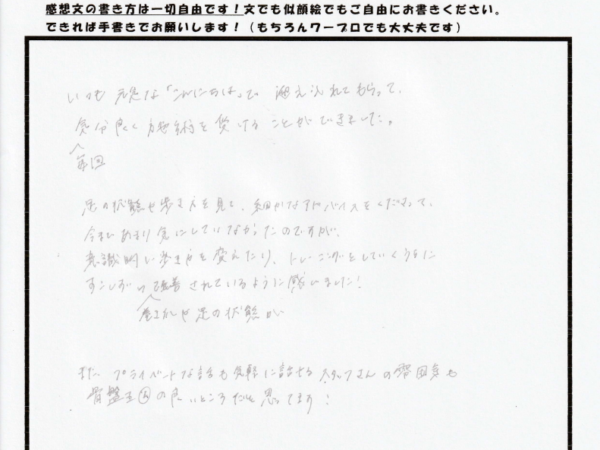 感想文の書き方は一切自由です！文でも似顔絵でもご自由にお書きください。
できれば手書きでお願いします！（もちろんワープロでも大丈夫です）
いつも 元気な「こんにちは」で 迎え入れてもらって、
気分良く施術を受けることができました。
毎回
足の状態や歩き方を見て、細かなアドバイスをくださって、
今まであまり気にしていなかったのですが、
意識的に歩き方を変えたり、トレーニングをしていくうちに
すこしずつ改善されているように感じました！
や足の状態が
また、プライベートな話も気軽に話せるスタッフさんの雰囲気も
骨盤王国の良いところだと思ってます！